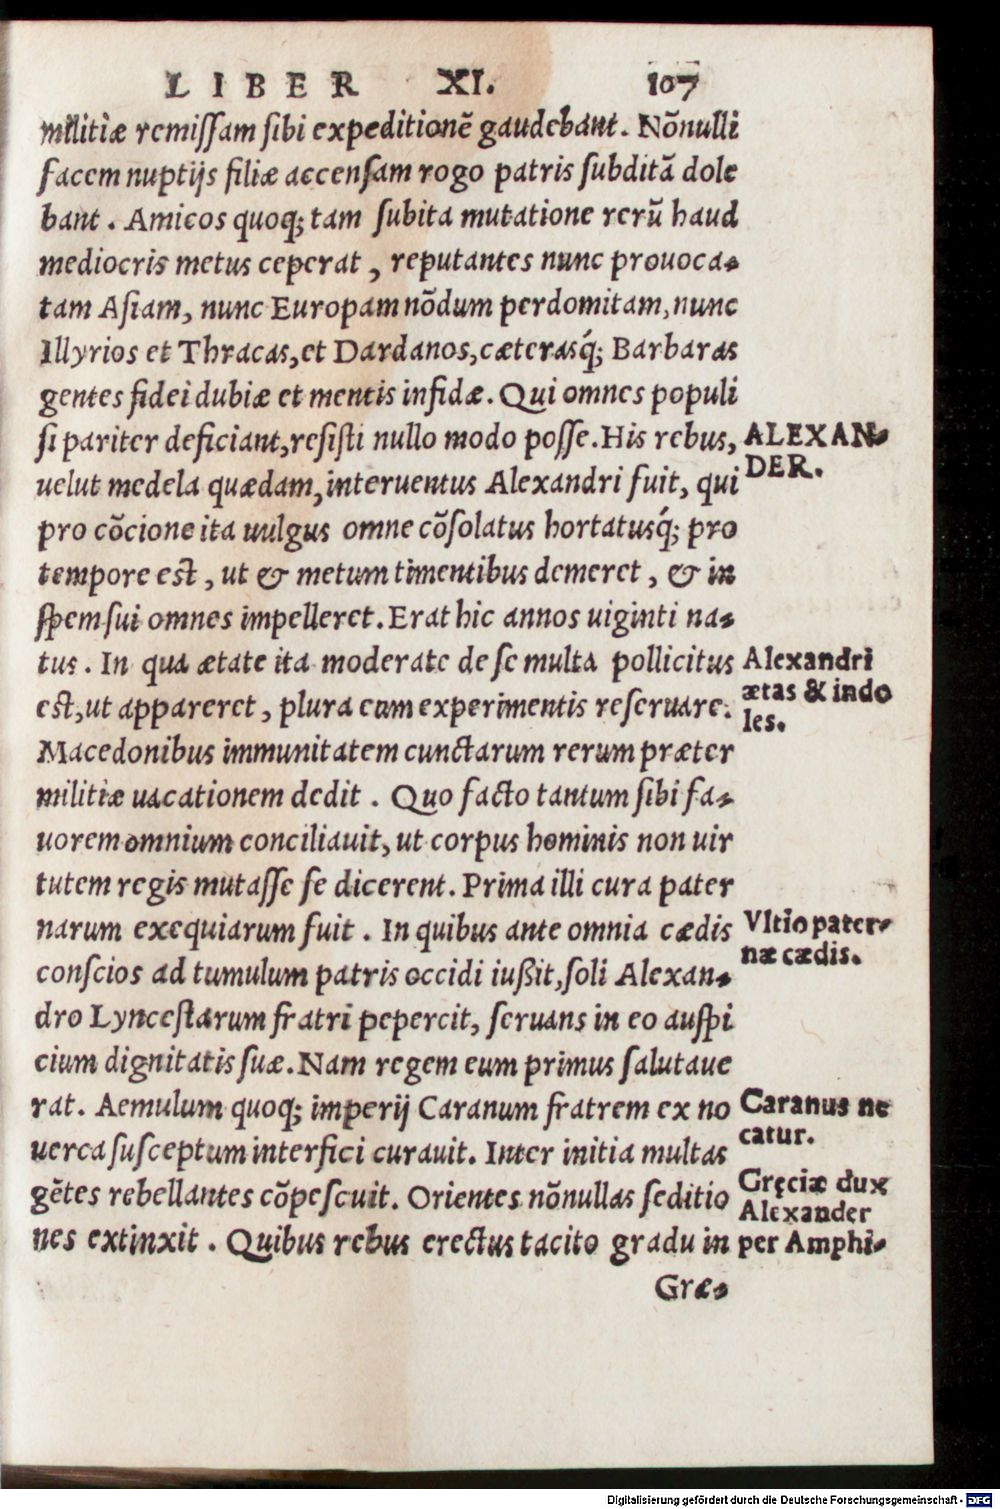 LIBER XI. 107
militiæ remiſſam ſibi expeditionē gaudebant. Nōnulli
facem nuptijs filiæ accenſam rogo patris ſubditā dole
bant. Amicos quoq; tam ſubita mutatione rerū haud
mediocris metus ceperat, reputantes nunc prouoca-
tam Aſiam, nunc Europam nōdum perdomitam, nunc
Illyrios et Thracas, et Dardanos, cæterasq́; Barbaras
gentes fidei dubiæ et mentis infidæ. Qui omnes populi
ſi pariter deficiant, reſiſti nullo modo poſſe. His rebus,
uelut medela quædam, interuentus Alexandri fuit, qui
pro cōcione ita uulgus omne cōſolatus hortatusq́; pro
tempore eſt, ut & metum timentibus demeret, & in
ſpem ſui omnes impelleret. Erat hic annos uiginti na-
tus. In qua ætate ita moderate de ſe multa pollicitus
eſt, ut appareret, plura eum experimentis reſeruare.
Macedonibus immunitatem cunctarum rerum præter
militiæ uacationem dedit. Quo facto tantum ſibi fa-
uorem omnium conciliauit, ut corpus hominis non uir
tutem regis mutaſſe ſe dicerent. Prima illi cura pater
narum exequiarum fuit. In quibus ante omnia cædis
conſcios ad tumulum patris occidi iußit, ſoli Alexan-
dro Lynceſtarum fratri pepercit, ſeruans in eo auſpi
cium dignitatis ſuæ. Nam regem eum primus ſalutaue
rat. Aemulum quoq; imperij Caranum fratrem ex no
uerca ſuſceptum interfici curauit. Inter initia multas
gētes rebellantes cōpeſcuit. Orientes nōnullas ſeditio
nes extinxit. Quibus rebus erectus tacito gradu in
Græ-
ALEXAN-
DER.
Alexandri
ætas & indo
les.
Vltio pater-
næ cædis.
Caranus ne
catur.
Gręciæ dux
Alexander
per Amphi-
Digitalisierung gefördert durch die Deutsche Forschungsgemeinschaft - DFG